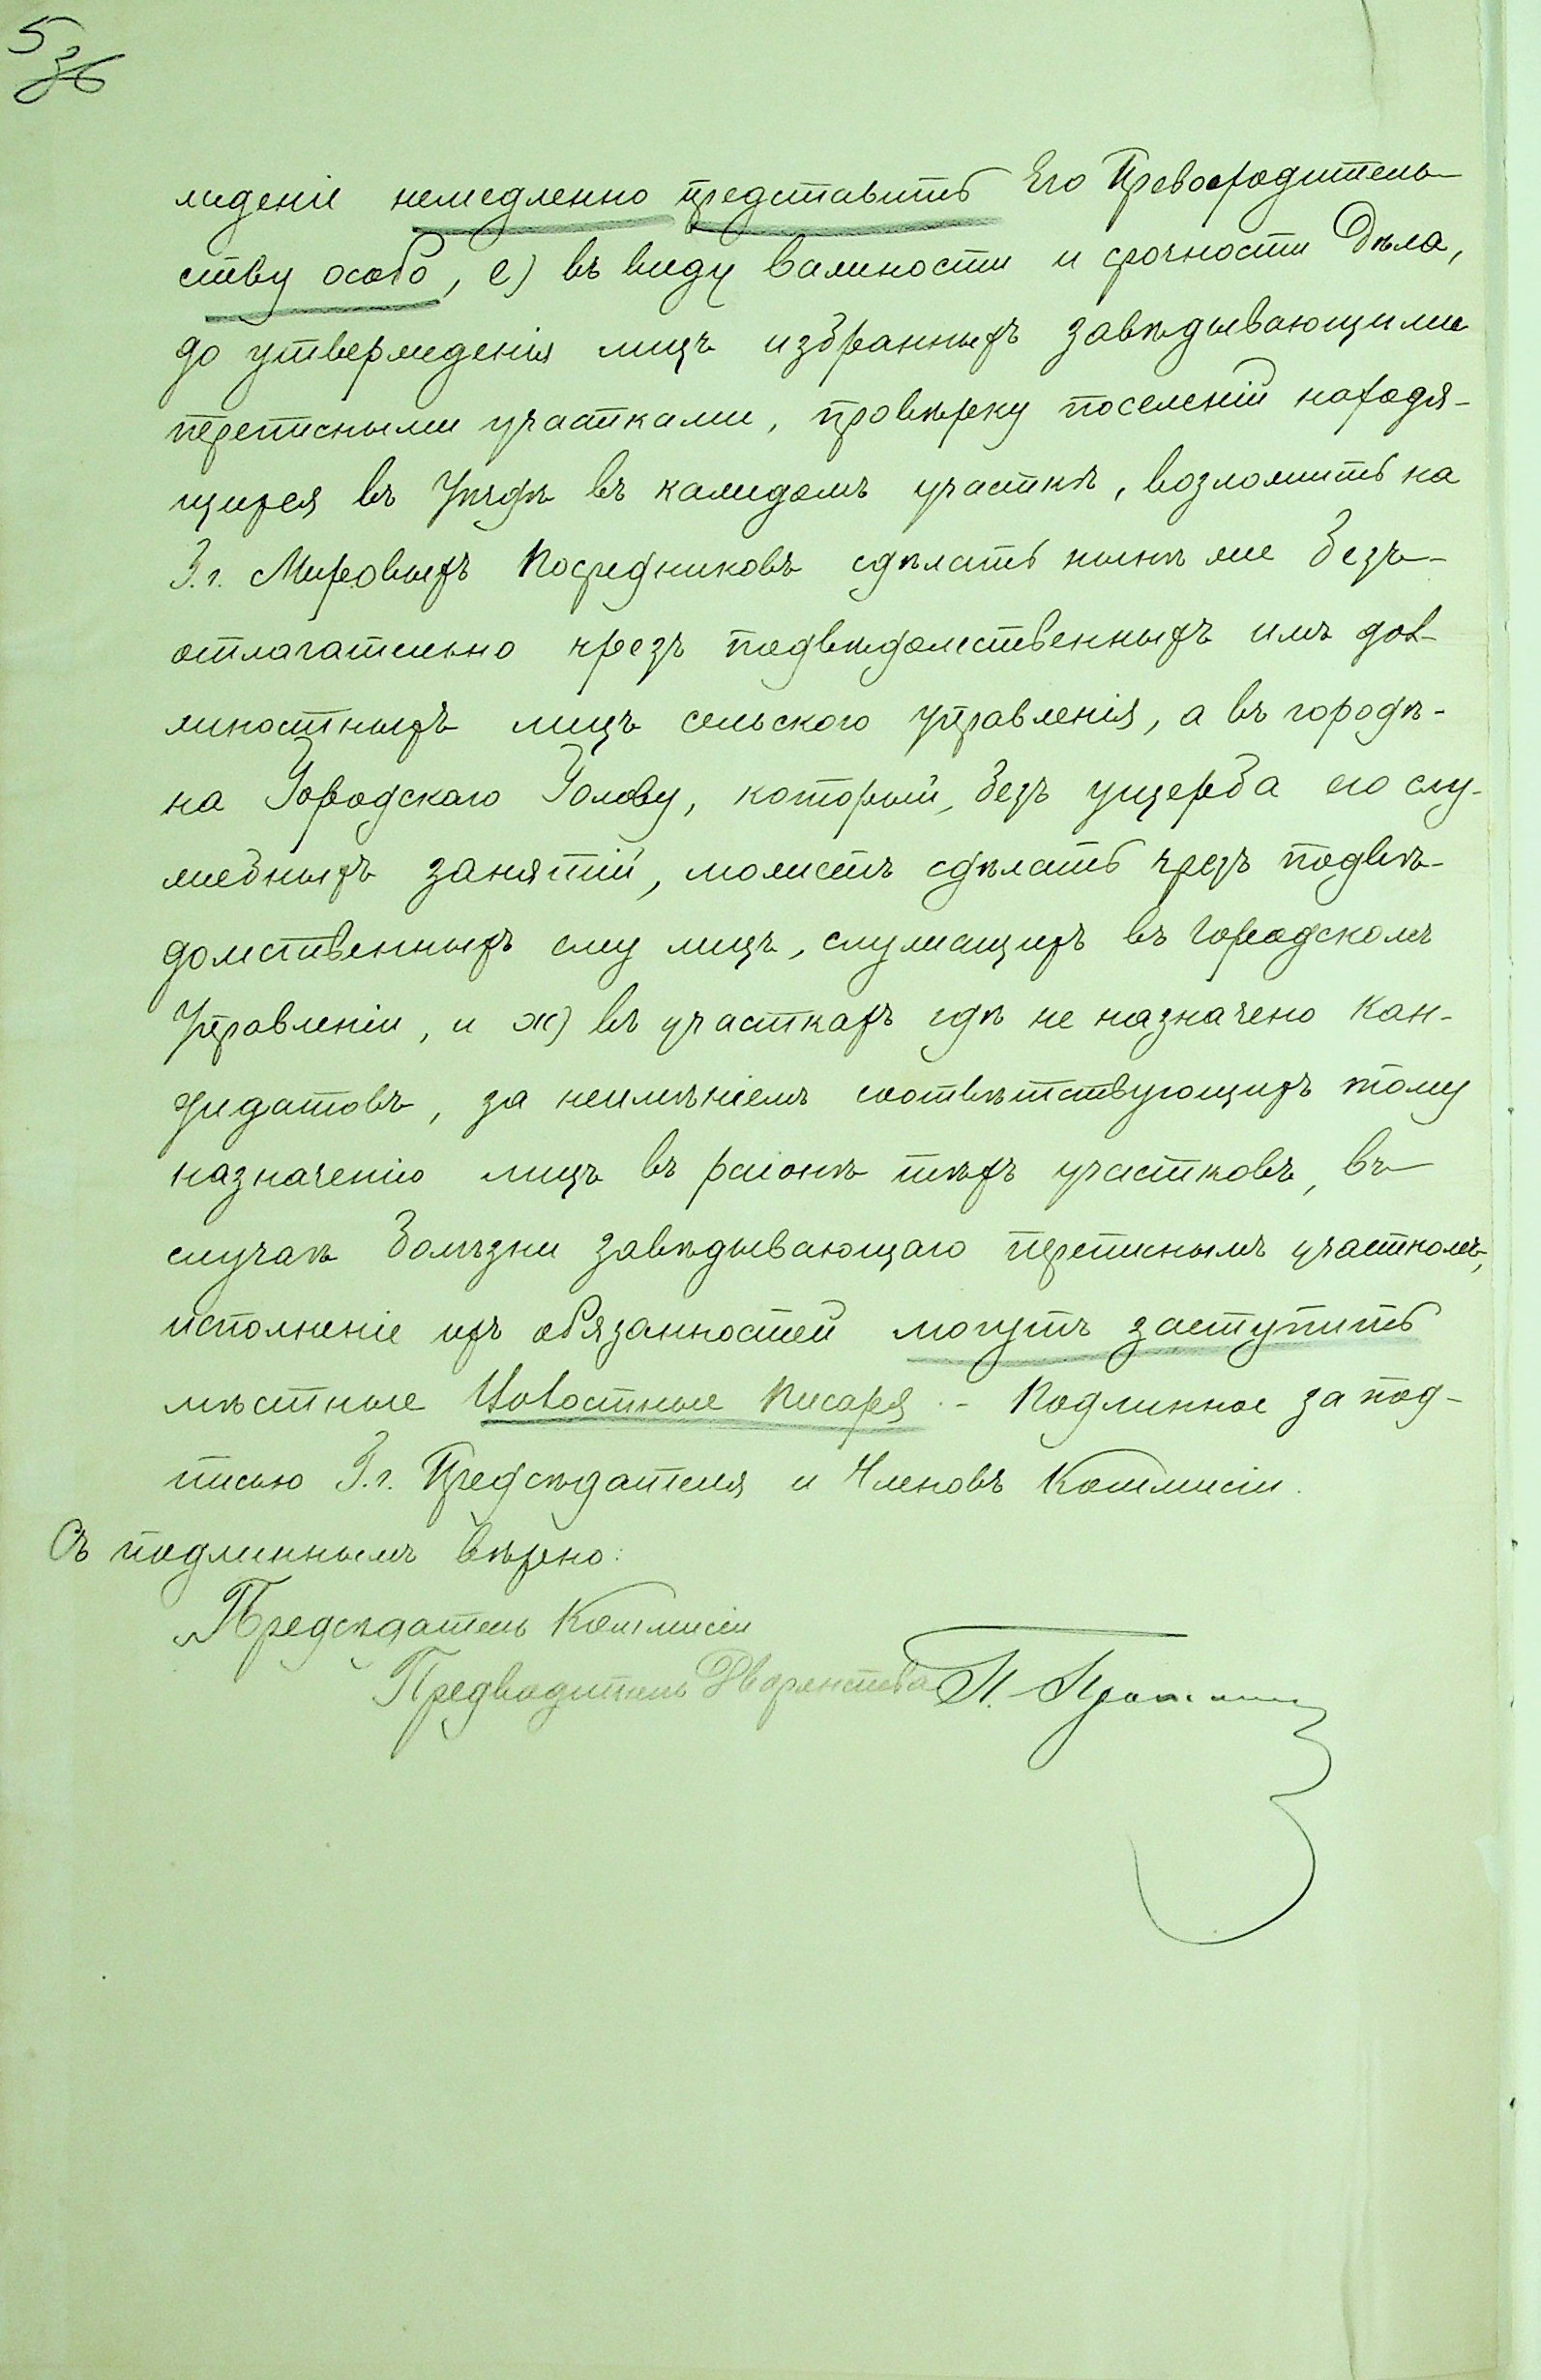 5
36
жденіе немедленно представить Его Превосходитель-
ству особо, е) въ виду важности и срочности Дѣла,
до утвержденія лицъ избранныхъ завѣдывающими
переписными участками, провѣрку поселеній находя-
щихся въ Уѣздѣ въ каждомъ участкѣ, возложить на
Г.г. Мировыхъ Посредниковъ сдѣлать нынѣ же безъ-
отлагательно чрезъ подвѣдомственныхъ имъ дол-
жностныхъ лицъ сельского управленія, а въ городѣ-
на Городскаго Голову, который, безъ ущерба его слу-
жебныхъ занятій, можетъ сдѣлать чрезъ подвѣ-
домственныхъ ему лицъ, служащихъ въ Городскомъ
Управленіи, и ж) въ участкахъ гдѣ не назначено кан-
дидатовъ, за неимѣніемъ соотвѣтствующихъ тому
назначенію лицъ въ раіонѣ тѣхъ участковъ, въ
случаѣ болѣзни завѣдывающаго переписнымъ участкомъ,
исполненіе ихъ обязанностей могутъ заступить
мѣстные Волостные Писаря. - Подлинное за под-
писью Г.г. Предсѣдателя и Членовъ Коммисіи.
Съ подлиннымъ вѣрно:
Предсѣдатель Коммисіи
Предводитель Дворянства П.